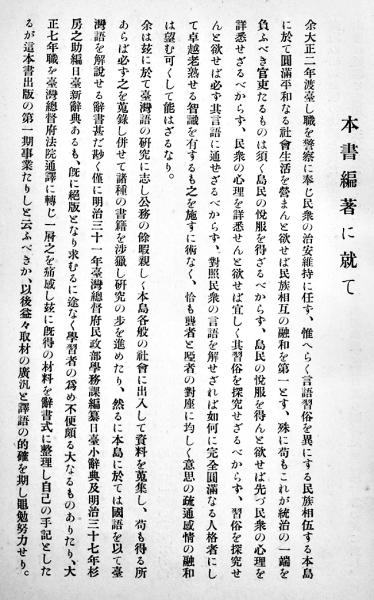 本書編著に就て
余大正二年渡臺し職を警察に奉じ民衆の治安維持に任ず、惟へらく言語習俗を異にする民族相伍する本島
に於て圓滿平和なる社會生活を營まんと欲せば民族相互の融和を第一とす、殊に苟もこれが統治の一端を
負ふべき官吏たるものは須く島民の悅服を得ざるべからず、島民の悅服を得んと欲せば先づ民衆の心理を
詳悉せざるべからず、民衆の心理を詳悉せんと欲せば宜しく其習俗を探究せざるべからず、習俗を探究せ
んと欲せば必ず其言語に通せざるべからず、對照民衆の言語を解せざれば如何に完全圓滿なる人格者にし
て卓越老熟せる智識を有するも之を施すに術なく、恰も聾者と啞者の對座に均しく意思の疏通感情の融和
は望む可くして能はざるなり。
余は玆に於て臺灣語の研究に志し公務の餘暇親しく本島各般の社會に出入して資料を蒐集し、苟も得る所
あらば必ず之を蒐錄し併せて諸種の書籍を涉獵し研究の步を進めたり、然るに本島に於ては國語を以て臺
灣語を解說せる辭書甚だ尠く僅に明治三十一年臺灣總督府民政部學務課編纂日臺小辭典及明治三十七年杉
房之助編日臺新辭典あるも、旣に絕版となり求むるに途なく學習者の爲め不便頗る大なるものありたり、大
正七年職を臺灣總督府法院通譯に轉じ一層之を痛感し玆に旣得の材料を辭書式に整理し自己の手記とした
るが這本書出版の第一期事業たりしと云ふべきか、以後益々取材の廣汎と譯語の的確を期し黽勉努力せり。